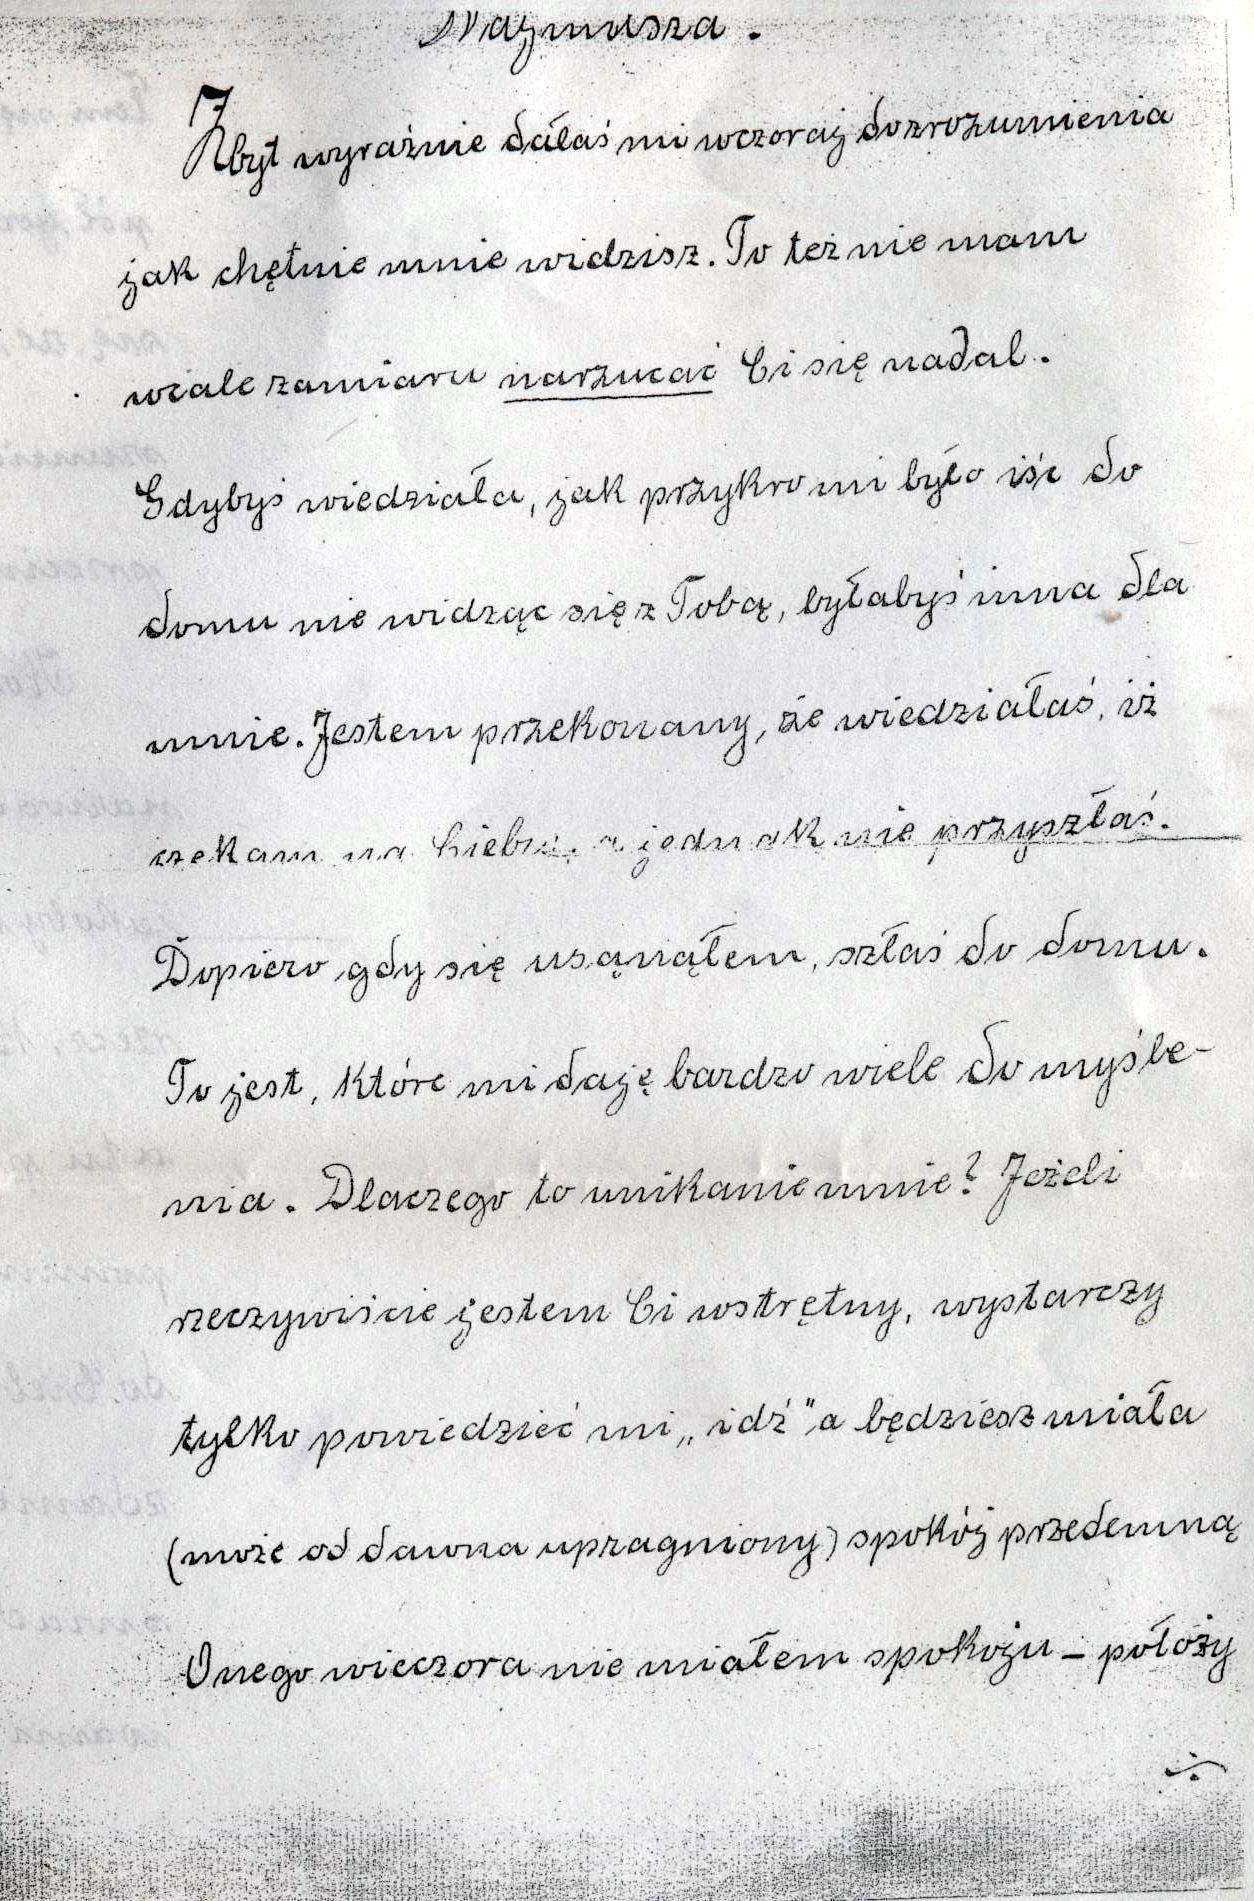 Najmilsza.
Zbyt wyraźnie dałaś mi wczoraj do zrozumienia
jak chętnie mnie widzisz. To też nie mam
wcale zamiaru narzucać Ci się nadal.
Gdybyś wiedziała, jak przykro mi było iść do
domu nie widząc się z Tobą, byłabyś inna dla
mnie. Jestem przekonany, że wiedziałaś, iż
czekam na Ciebie, a jednak nie przyszłaś.
Dopiero gdy się usunąłem, szłaś do domu.
To jest, które mi daję bardzo wiele do myśle-
nia. Dlaczego to unikanie mnie? Jeżeli
rzeczywiście jestem Ci wstrętny, wystarczy
tylko powiedzieć mi „idź" a będziesz miała
(może od dawna upragniony) spokój przedemną
Onego wieczora nie miałem spokoju – położy